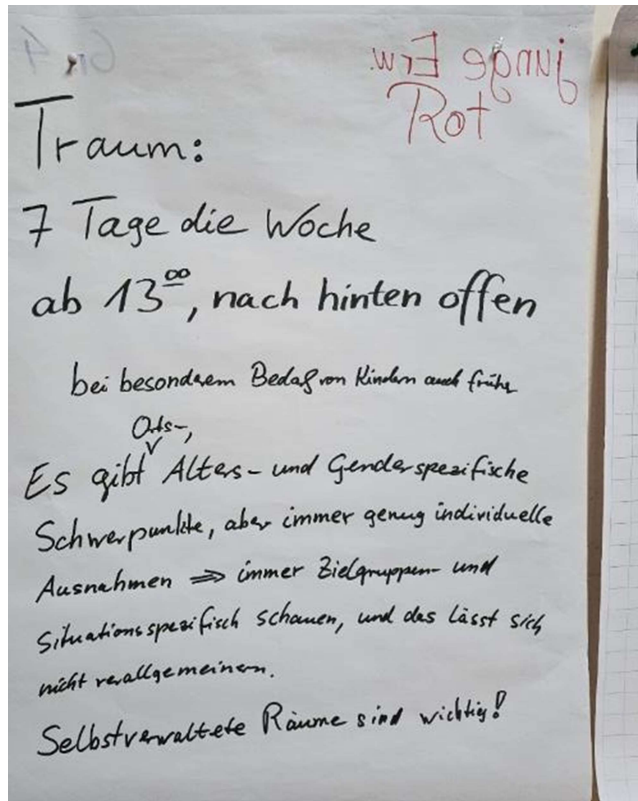 Gr. 4
junge Erw.
Rot
Traum:
7 Tage die Woche
ab 13⁰⁰, nach hinten offen
bei besonderem Bedarf von Kindern auch früher
Orts-,
Es gibt Alters- und Genderspezifische
Schwerpunkte, aber immer genug individuelle
Ausnahmen ⇒ immer Zielgruppen- und
Situationsspezifisch schauen, und das lässt sich
nicht verallgemeinern.
Selbstverwaltete Räume sind wichtig!